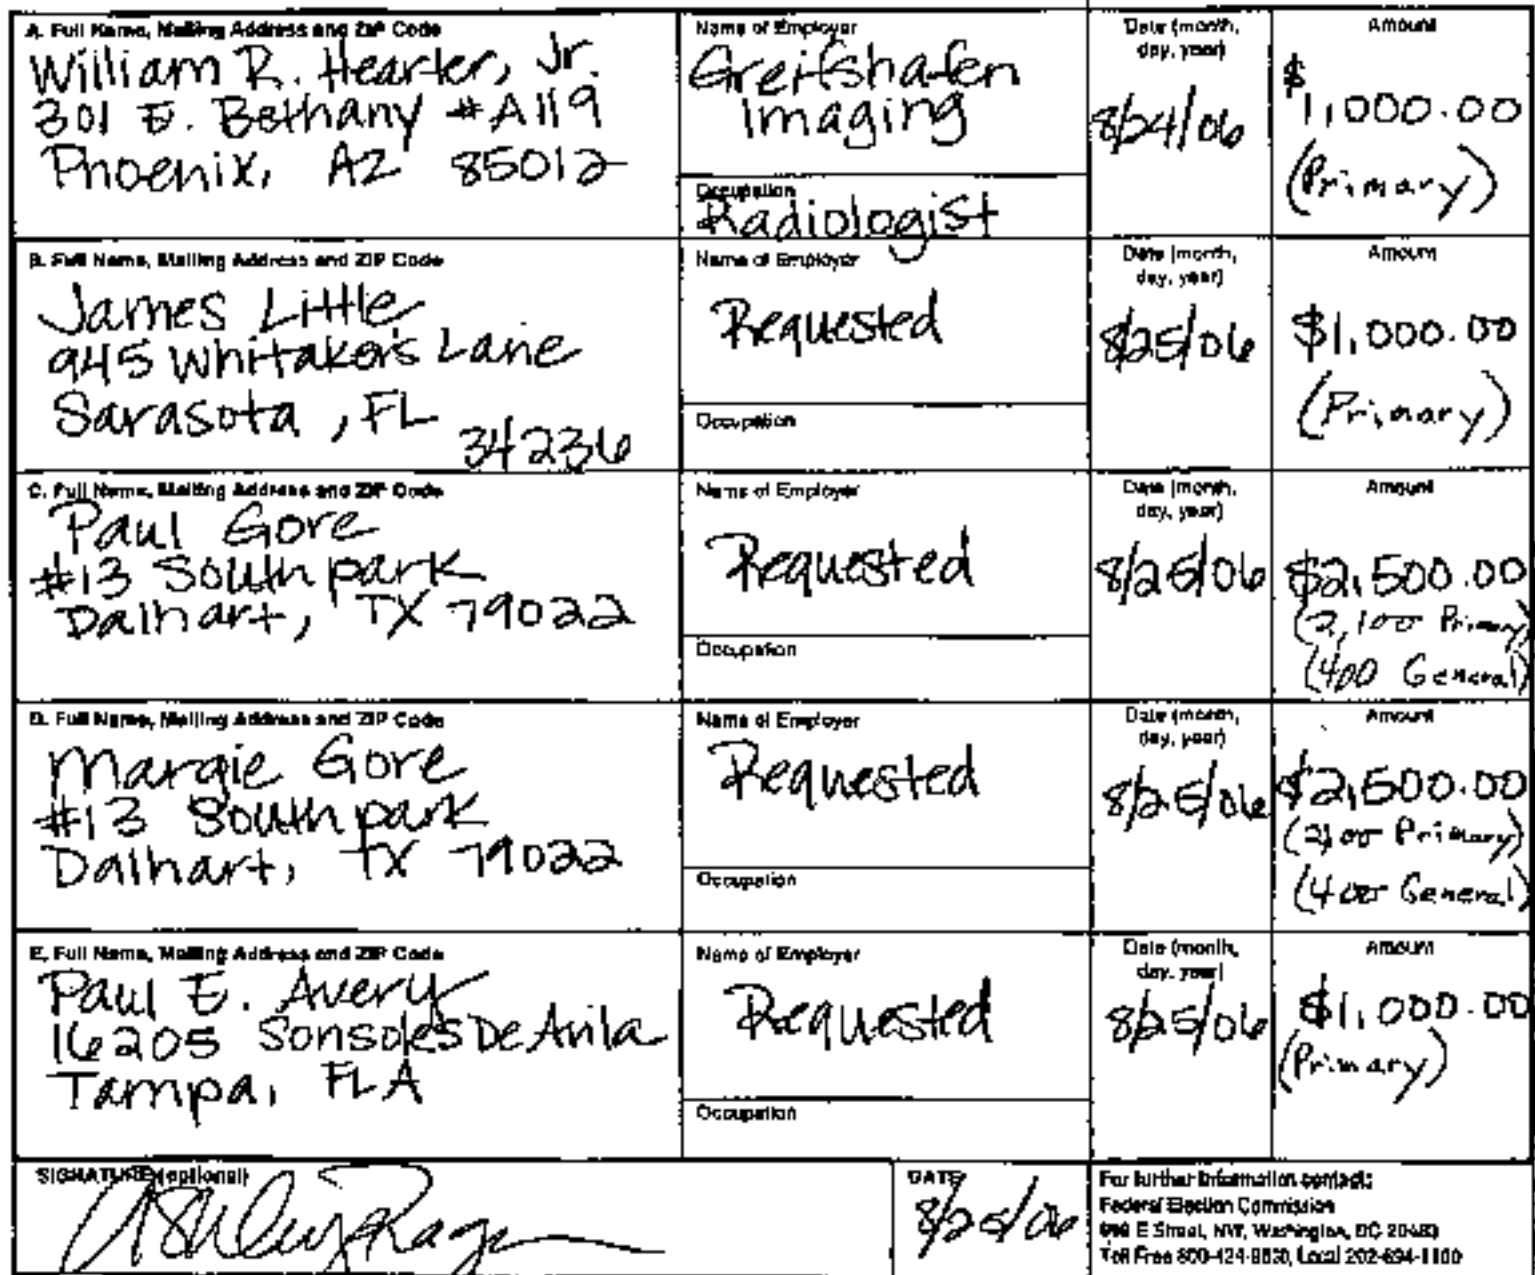 A. Full Name, Mailing Address and ZIP Code
William R. Hearter, Jr.
301 E. Bethany #A119
Phoenix, AZ 85012
Name of Employer
Greifshafen
Imaging
Occupation
Radiologist
Date (month,
day, year)
8/24/06
Amount
$
1,000.00
(Primary)
B. Full Name, Mailing Address and ZIP Code
James Little
945 Whitakers Lane
Sarasota, FL
34236
Name of Employer
Requested
Occupation
Date (month,
day, year)
8/25/06
Amount
$1,000.00
(Primary)
C. Full Name, Mailing Address and ZIP Code
Paul Gore
#13 Southpark
Dalhart, TX 79022
Name of Employer
Requested
Occupation
Date (month,
day, year)
8/25/06
Amount
$2,500.00
(2,100 Primary)
(400 General)
D. Full Name, Mailing Address and ZIP Code
Margie Gore
#13 Southpark
Dalhart, TX 79022
Name of Employer
Requested
Occupation
Date (month,
day, year)
8/25/06
Amount
$2,500.00
(2100 Primary)
(400 General)
E. Full Name, Mailing Address and ZIP Code
Paul E. Avery
16205 Sonsoles De Avila
Tampa, FLA
Name of Employer
Requested
Occupation
Date (month,
day, year)
8/25/06
Amount
$1,000.00
(Primary)
SIGNATURE (optional)
Ashley
DATE
8/25/06
For further information contact:
Federal Election Commission
999 E Street, NW, Washington, DC 20463
Toll Free 800-424-9530, Local 202-694-1100